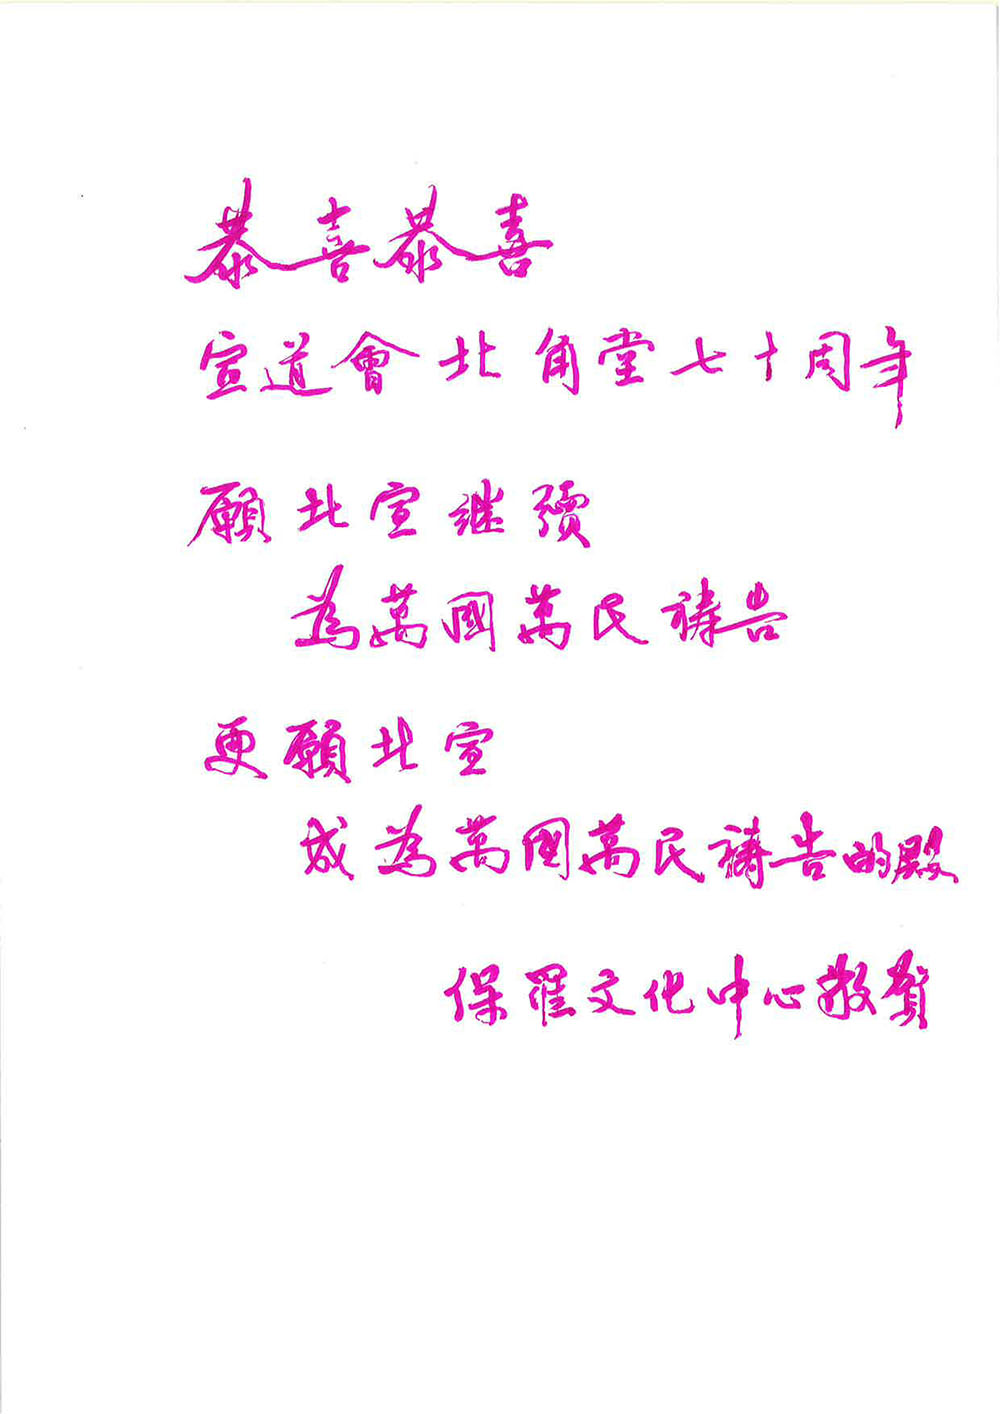 恭喜恭喜
宣道會北角堂七十周年
願北宣继續
為萬國萬民禱告
更願北宣
成為萬國萬民禱告的殿
保羅文化中心敬賀